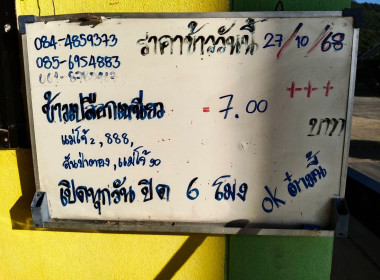 084-4859373 ราคาข้าววันนี้ 27/10/68
085-6954883
ข้าวเปลือกเหนียว = 7.00 บาท
+++
แม่โจ้ 2, 888,
สันป่าตอง, แม่โจ้ 20
เปิดทุกวัน ปิด 6 โมง ok